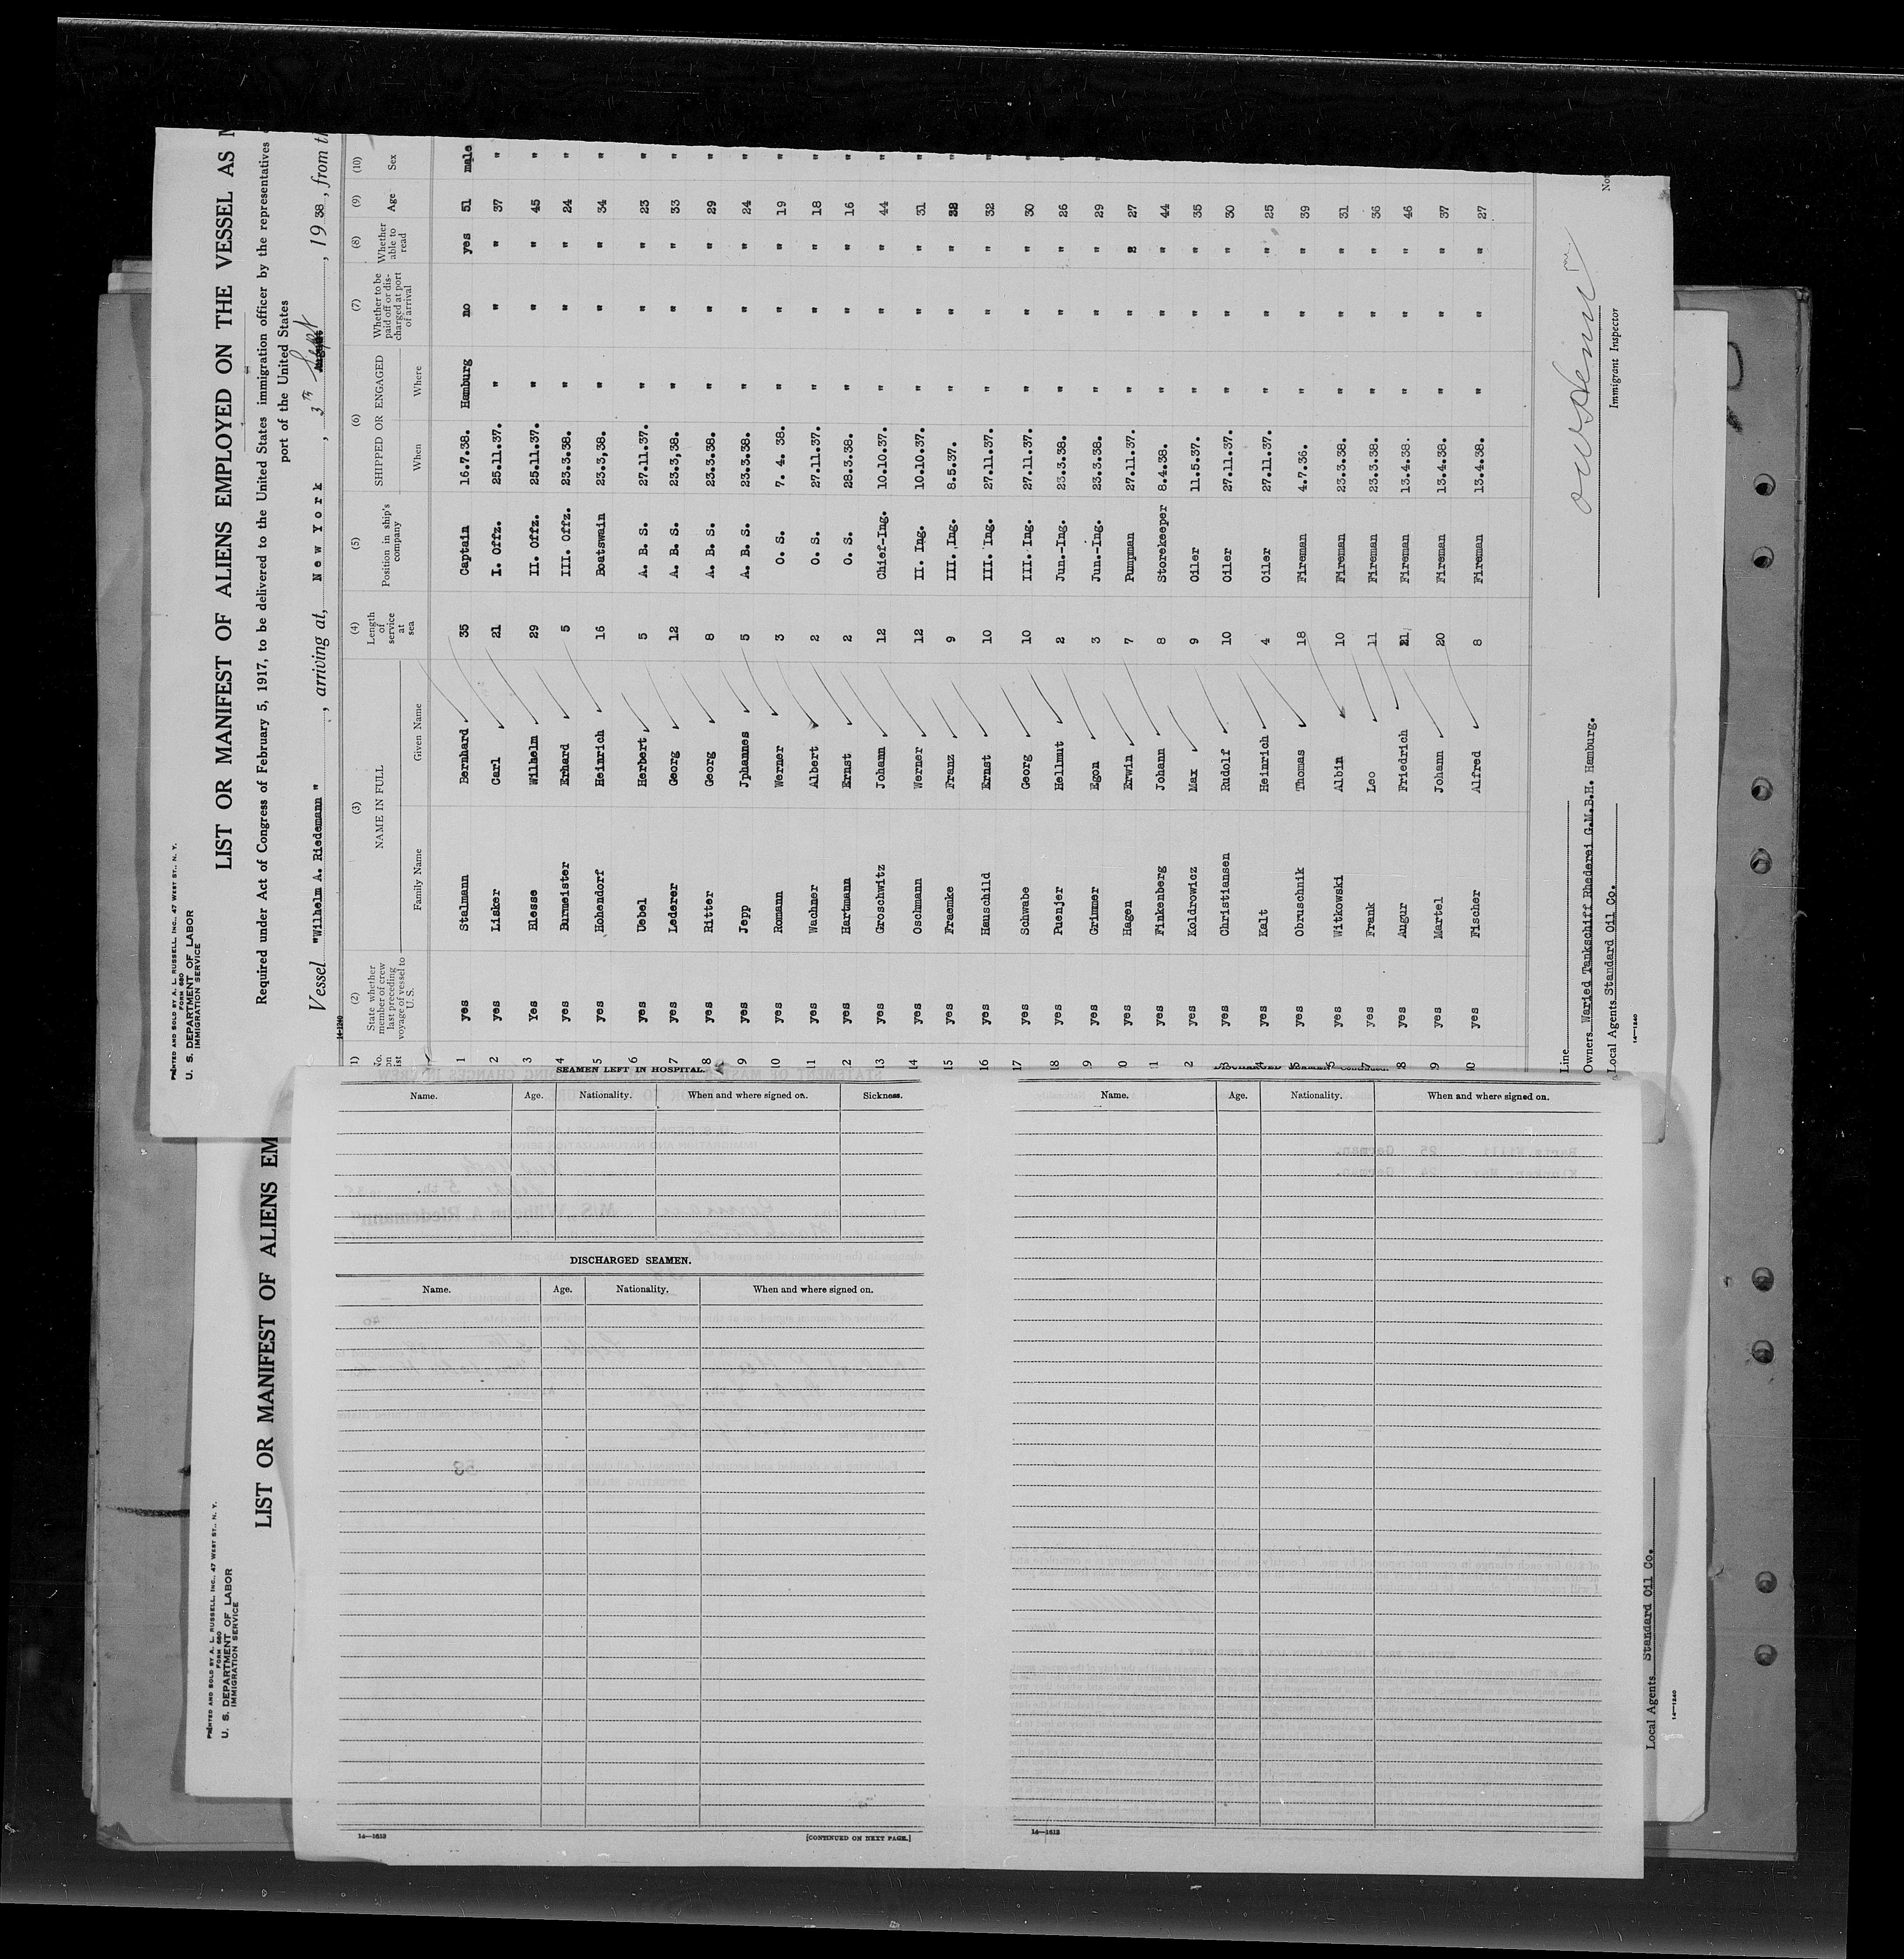 PRINTED AND SOLD BY A. L. RUSSELL, INC., 47 WEST ST., N. Y.
FORM 680
U. S. DEPARTMENT OF LABOR
IMMIGRATION SERVICE
LIST OR MANIFEST OF ALIENS EMPLOYED ON THE VESSEL AS
Required under Act of Congress of February 5, 1917, to be delivered to the United States immigration officer by the representatives
port of the United States
Vessel "Wilhelm A. Riedemann ", arriving at, New York, 3rd Sept, 1938, from
14-1240
(2) (3) (4) (5) (6) (7) (8) (9) (10)
State whether member of crew last preceding voyage of vessel to U.S. NAME IN FULL Length of service at sea Position in ship's company SHIPPED OR ENGAGED Whether to be paid off or discharged at port of arrival Whether able to read Age Sex
Family Name Given Name When Where
1 yes Stalmann Bernhard 35 Captain 16.7.38. Hamburg no yes 51 male
2 yes Lisker Carl 21 I. Offz. 25.11.37. " " " 37 "
3 Yes Blesse Wilhelm 29 II. Offz. 25.11.37. " " " 45 "
4 yes Burmeister Erhard 5 III. Offz. 23.3.38. " " " 24 "
5 yes Hohendorf Heinrich 16 Boatswain 23.3,38. " " " 34 "
6 yes Uebel Herbert 5 A. B. S. 27.11.37. " " " 23 "
7 yes Lederer Georg 12 A. B. S. 23.3,38. " " " 33 "
8 yes Ritter Georg 8 A. B. S. 23.3.38. " " " 29 "
9 yes Jepp Jphannes 5 A. B. S. 23.3.38. " " " 24 "
10 yes Romann Werner 3 O. S. 7. 4. 38. " " " 19 "
11 yes Wachner Albert 2 O. S. 27.11.37. " " " 18 "
2 yes Hartmann Ernst 2 O. S. 28.3.38. " " " 16 "
13 yes Groschwitz Johann 12 Chief-Ing. 10.10.37. " " " 44 "
14 yes Oschmann Werner 12 II. Ing. 10.10.37. " " " 31 "
15 yes Fraemke Franz 9 III. Ing. 8.5.37. " " " 32 "
16 yes Hauschild Ernst 10 III. Ing. 27.11.37. " " " 32 "
17 yes Schwabe Georg 10 III. Ing. 27.11.37. " " " 30 "
18 yes Puenjer Hellmut 2 Jun.-Ing. 23.3.38. " " " 26 "
9 yes Grimmer Egon 3 Jun.-Ing. 23.3.38. " " " 29 "
0 yes Hagen Erwin 7 Pumpman 27.11.37. " " " 27
1 yes Finkenberg Johann 8 Storekeeper 8.4.38. " " " 44
2 yes Koldrowicz Max 9 Oiler 11.5.37. " " " 35
3 yes Christiansen Rudolf 10 Oiler 27.11.37. " " " 30
4 yes Kalt Heinrich 4 Oiler 27.11.37. " " " 25
5 yes Obruschnik Thomas 18 Fireman 4.7.36. " " " 39
6 yes Witkowski Albin 10 Fireman 23.3.38. " " " 31
7 yes Frank Leo 11 Fireman 23.3.38. " " " 36
8 yes Augur Friedrich 21 Fireman 13.4.38. " " " 46
9 yes Martel Johann 20 Fireman 13.4.38. " " " 37
0 yes Fischer Alfred 8 Fireman 13.4.38. " " " 27
Line
Owners Waried Tankschiff Rhederei G.M.B.H. Hamburg.
Local Agents Standard Oil Co.
Immigrant Inspector
14—1240
SEAMEN LEFT IN HOSPITAL.
Name. Age. Nationality. When and where signed on. Sickness.
DISCHARGED SEAMEN.
Name. Age. Nationality. When and where signed on.
14—1613
[CONTINUED ON NEXT PAGE.]
DISCHARGED SEAMEN—Continued.
Name. Age. Nationality. When and where signed on.
14—1613
PRINTED AND SOLD BY A. L. RUSSELL, INC., 47 WEST ST., N. Y.
FORM 680
U. S. DEPARTMENT OF LABOR
IMMIGRATION SERVICE
LIST OR MANIFEST OF ALIENS EM
Local Agents Standard Oil Co.
14—1240